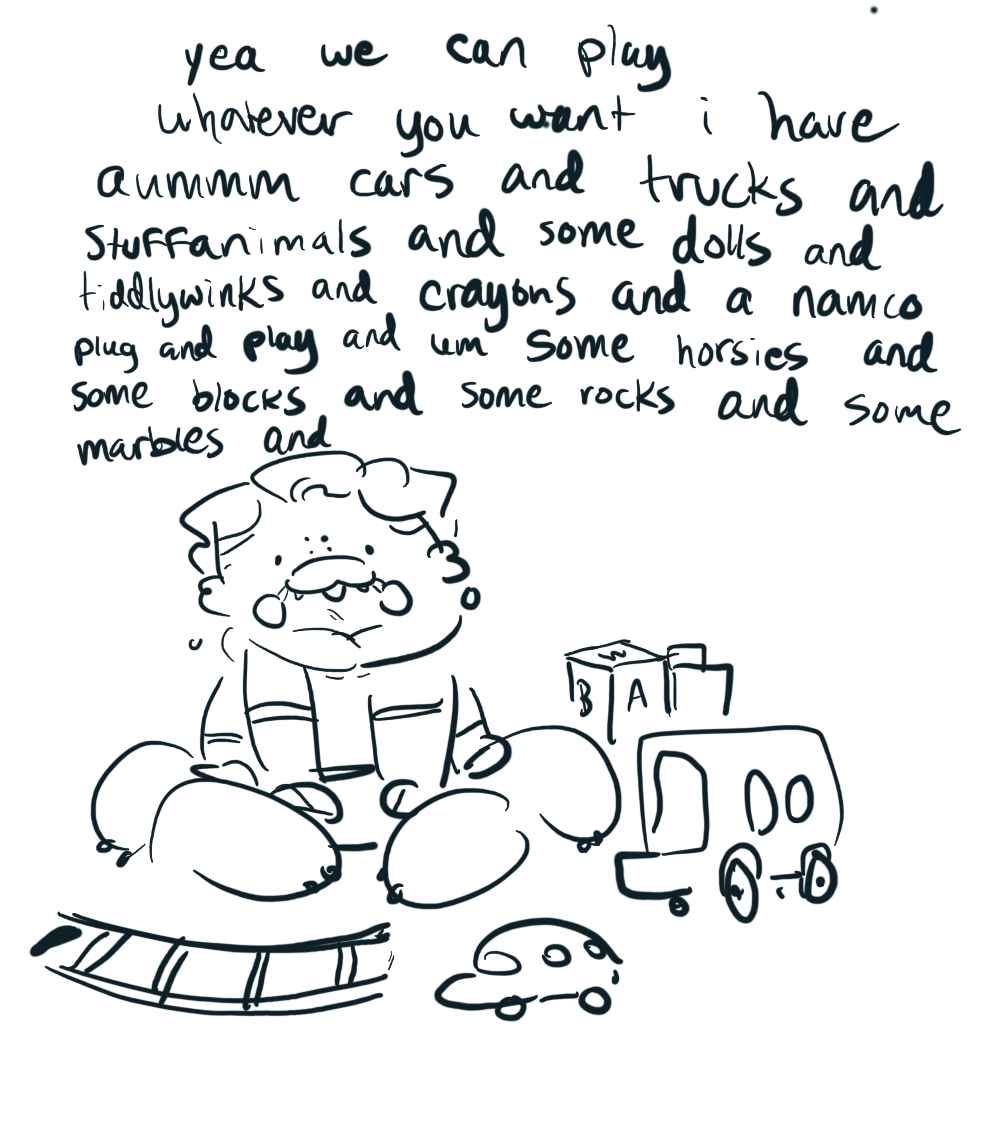 yea we can play
whatever you want i have
aummm cars and trucks and
stuffanimals and some dolls and
tiddlywinks and crayons and a namco
plug and play and um some horsies and
some blocks and some rocks and some
marbles and
W
B A